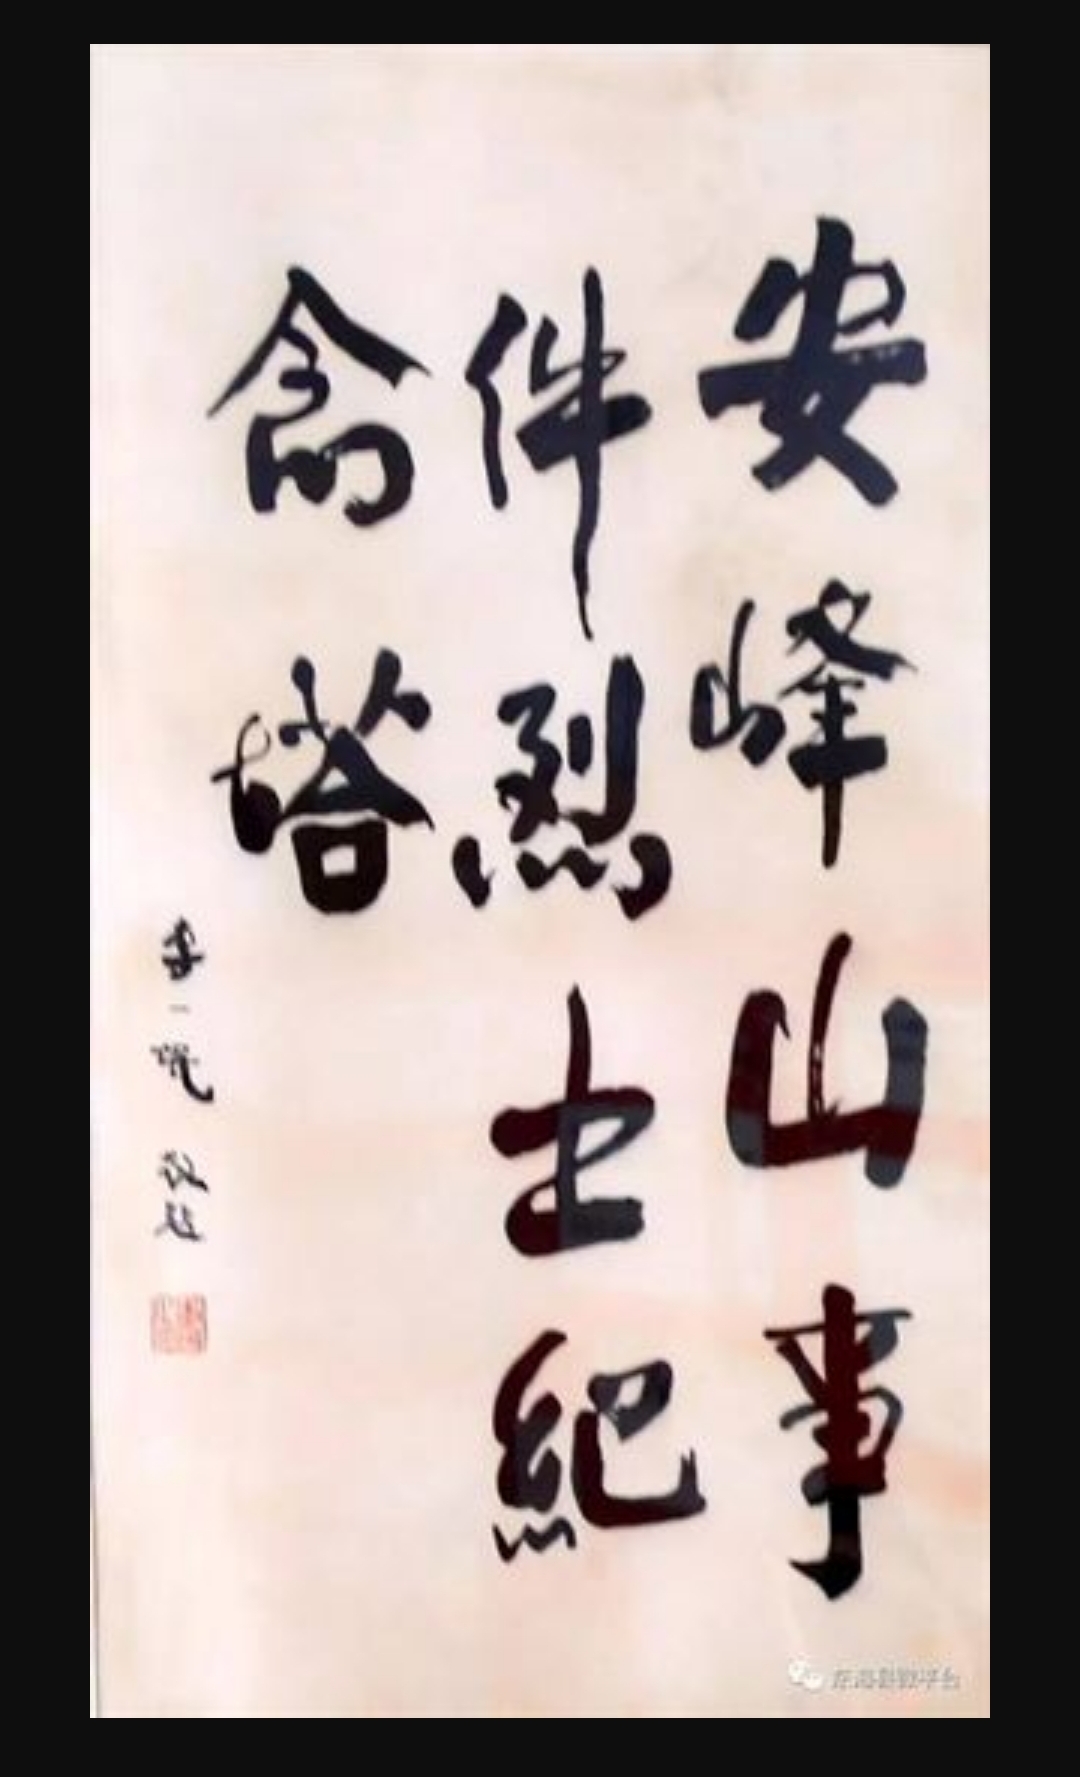 安峰山事
件烈士紀
念塔
李一氓 敬題
东海县微平台